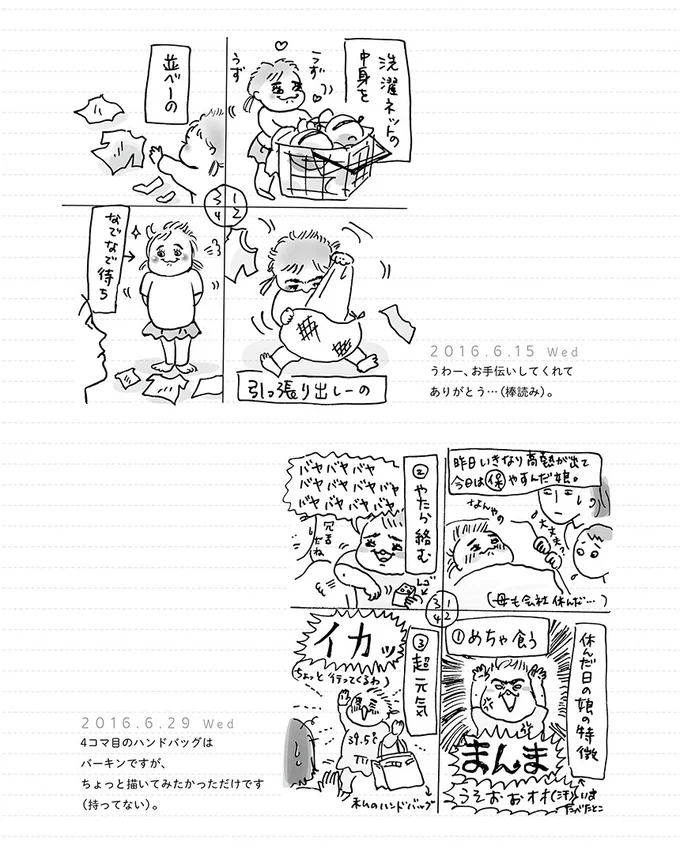 洗濯ネットの
中身を
うず
うず
1
2
3
4
引っ張り出しーの
並べーの
なでなで待ち
2016.6.15 Wed
うわー、お手伝いしてくれて
ありがとう…(棒読み)。
昨日いきなり高熱が出て
今日は保やすんだ娘。
なんやの
大丈夫?
(母も会社休んだ…)
1
2
3
4
休んだ日の娘の特徴
①めちゃ食う
まんま
うそぉぉオオ(汗)
いま
たべたとこ
②やたら絡む
バヤバヤバヤ
バヤバヤバヤバヤ
バヤバヤバヤバヤ
冗舌だね
レゴ
③超元気
イカッ
(ちょっと行ってくるわ)
39.5℃
私のハンドバッグ
2016.6.29 Wed
4コマ目のハンドバッグは
バーキンですが、
ちょっと描いてみたかっただけです
(持ってない)。